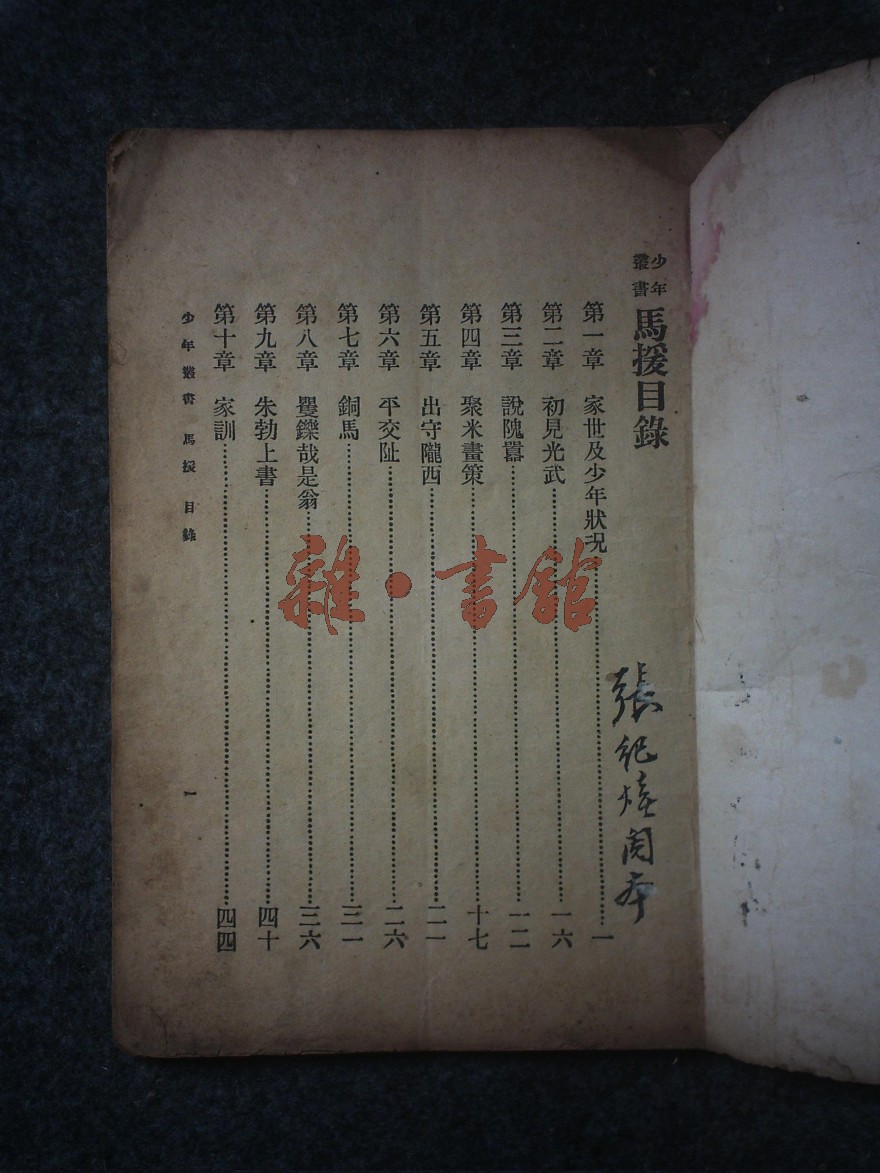 少年叢書 馬援目錄
第一章 家世及少年狀況……一
第二章 初見光武……一六
第三章 說隗囂……一二
第四章 聚米畫策……十七
第五章 出守隴西……二一
第六章 平交趾……二六
第七章 銅馬……三一
第八章 矍鑠哉是翁……三六
第九章 朱勃上書……四十
第十章 家訓……四四
少年叢書 馬援 目錄 一
張紀
雜·書館